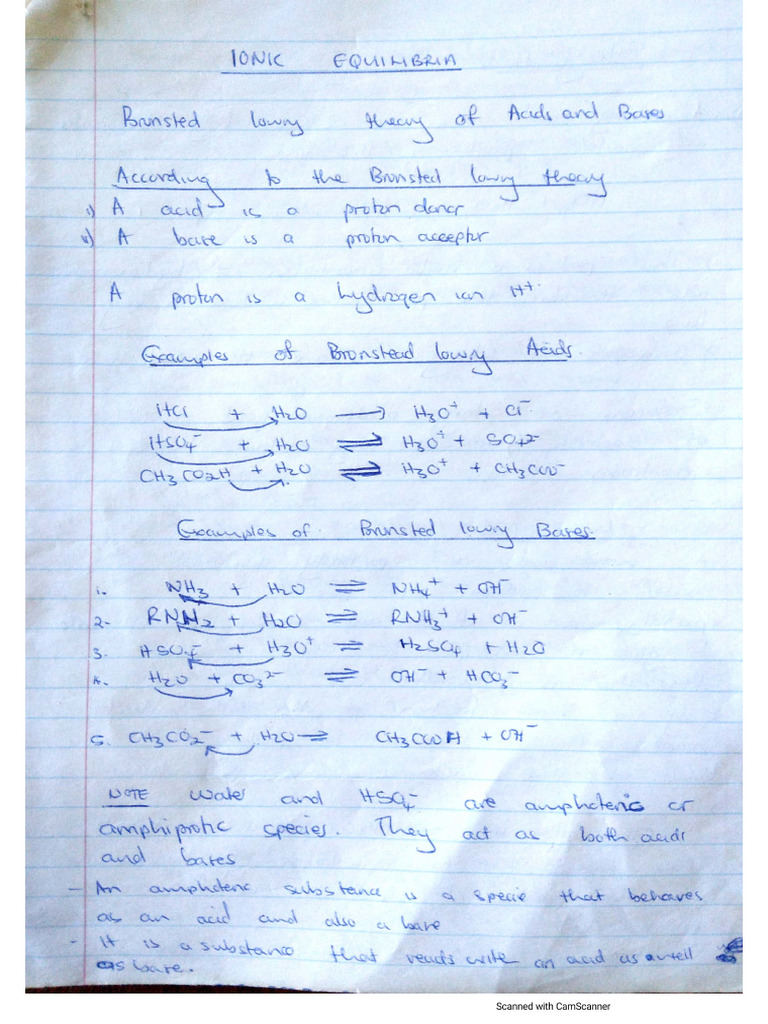 IONIC EQUILIBRIA
Bronsted lowry theory of Acids and Bases
According to the Bronsted lowry theory
i) A acid is a proton donor
ii) A base is a proton acceptor
A proton is a hydrogen ion H⁺
Examples of Bronstead lowry Acids.
HCl + H2O ⟶ H3O⁺ + Cl⁻
HSO4⁻ + H2O ⇌ H3O⁺ + SO4²⁻
CH3CO2H + H2O ⇌ H3O⁺ + CH3COO⁻
Examples of Bronsted lowry Bases.
1. NH3 + H2O ⇌ NH4⁺ + OH⁻
2- RNH2 + H2O ⇌ RNH3⁺ + OH⁻
3. HSO4⁻ + H3O⁺ ⇌ H2SO4 + H2O
4. H2O + CO3²⁻ ⇌ OH⁻ + HCO3⁻
5. CH3CO2⁻ + H2O ⇌ CH3COOH + OH⁻
NOTE Water and HSO4⁻ are amphoteric or
amphiprotic species. They act as both acids
and bases
- An amphoteric substance is a specie that behaves
as an acid and also a base
- It is a substance that reacts with an acid as well
as base.
Scanned with CamScanner